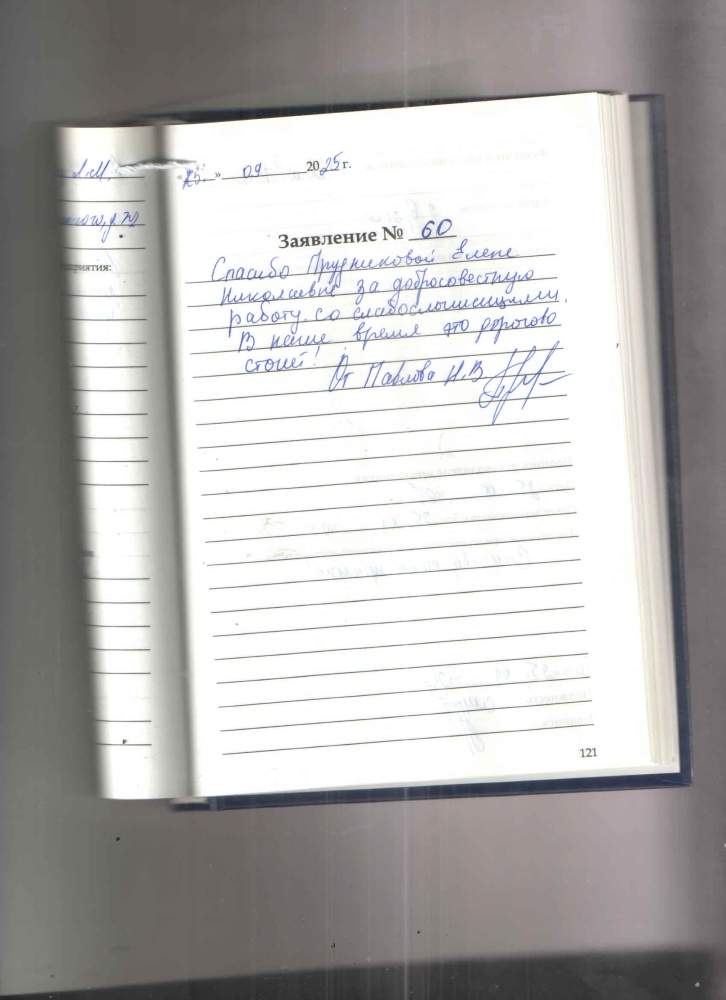 А.М.
приятия:
«25.» 09 2025 г.
Заявление № 60
Спасибо Прудниковой Елене
Николаевне за добросовестную
работу со слабослышащими.
В наше время это дорогого
стоит!
От Павлова Н.В
121